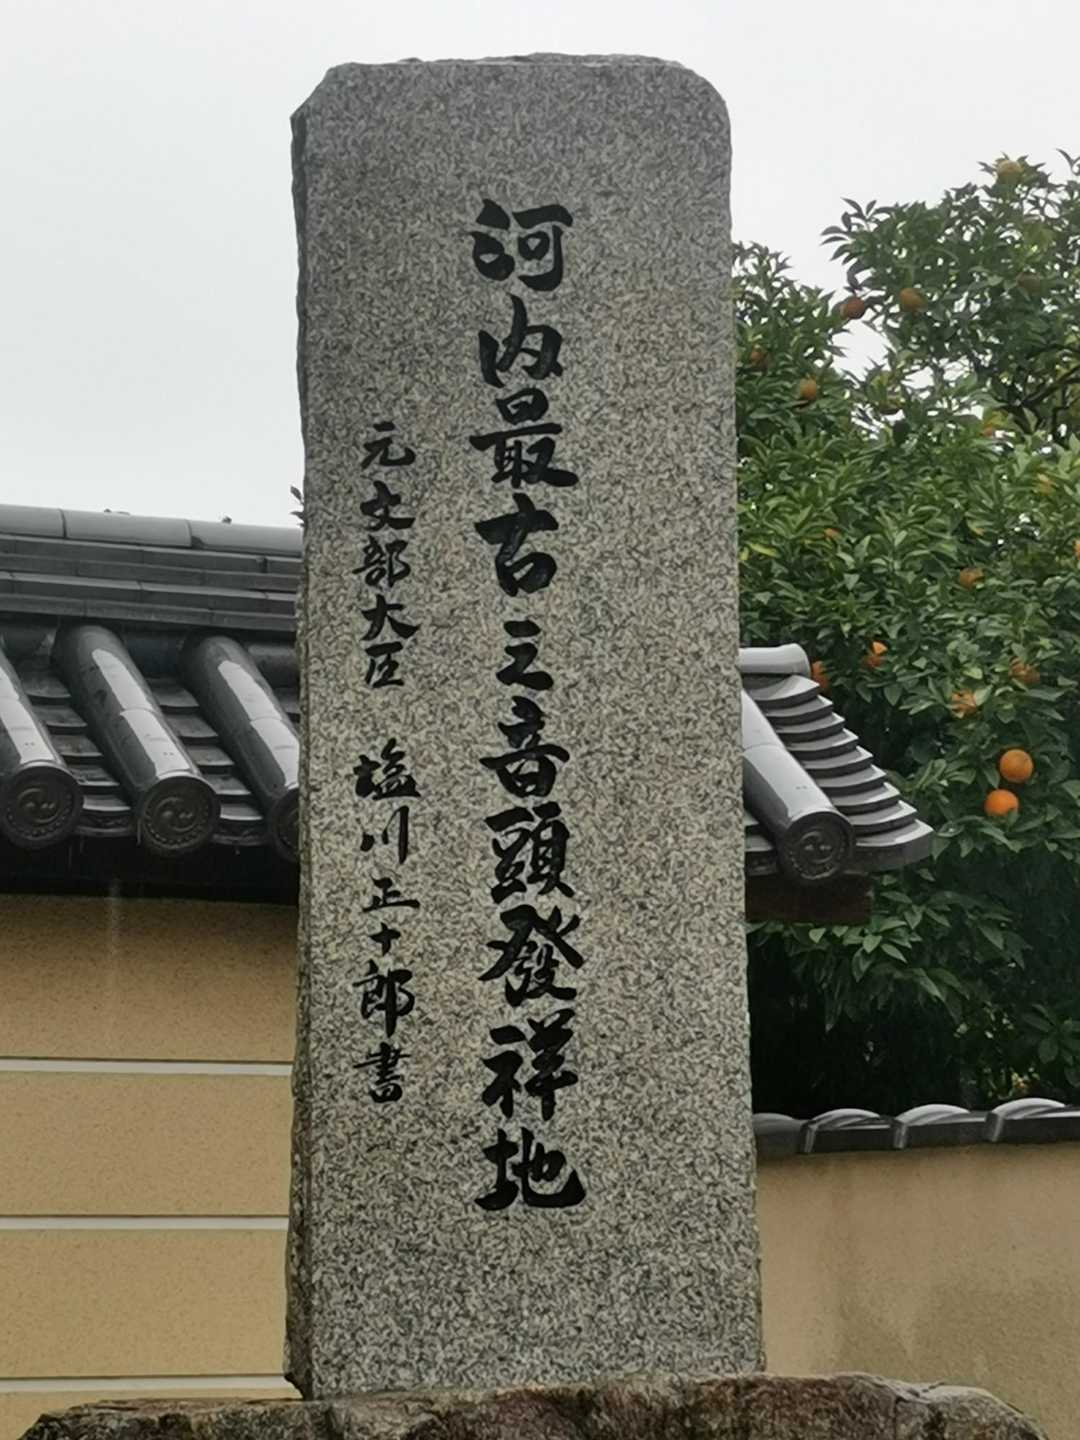 河内最古之音頭發祥地
元文部大臣 塩川正十郎書